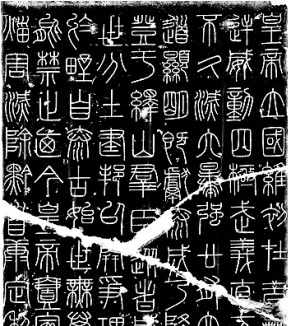 皇帝立國維初在昔
逆威動四極武義直
不久滅六暴強廿有
道顯明既獻泰成乃
登于繹山群臣從者
世分土建邦以開爭
於野自泰古始世無
能禁止迺今皇帝壹
災害滅除黔首康定